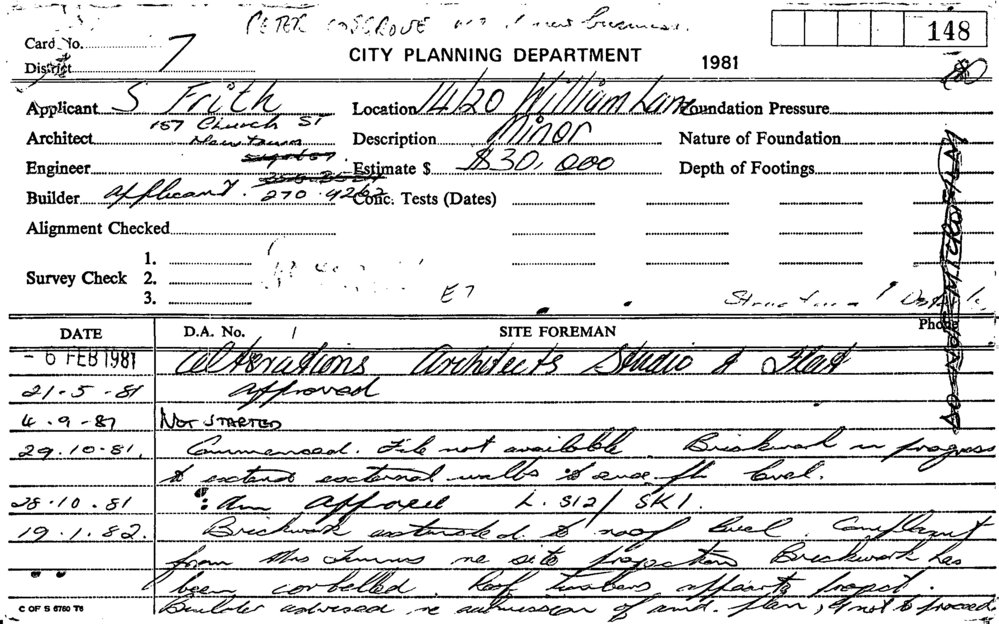 PETER COSGROVE new business.
Card No. 7 148
District CITY PLANNING DEPARTMENT 1981
Applicant S Frith Location 14/20 William Lane Foundation Pressure
157 Church ST
Architect Newtown Description Minor Nature of Foundation
Engineer Estimate $ $30,000 Depth of Footings
Builder applicant. 270.4262 Conc. Tests (Dates)
Alignment Checked
1.
Survey Check 2.
3. E7
Structural
DO NOT MICROFILM
DATE D.A. No. SITE FOREMAN Phone
- 6 FEB 1981 Alterations Architects Studio & Flat
21-5-81 approved
4.9-81 NOT STARTED
29.10-81. Commenced. File not available. Brickwork in progress
to extend external walls to flr level.
28-10.81 approved L.S12/SK1.
19.1.82. Brickwork extended to roof level. Complaint
from Mrs re site Brickwork has
been corbelled. Roof timbers project.
Builder advised re submission of amd. plan, & not to proceed
C OF S 6760 T6